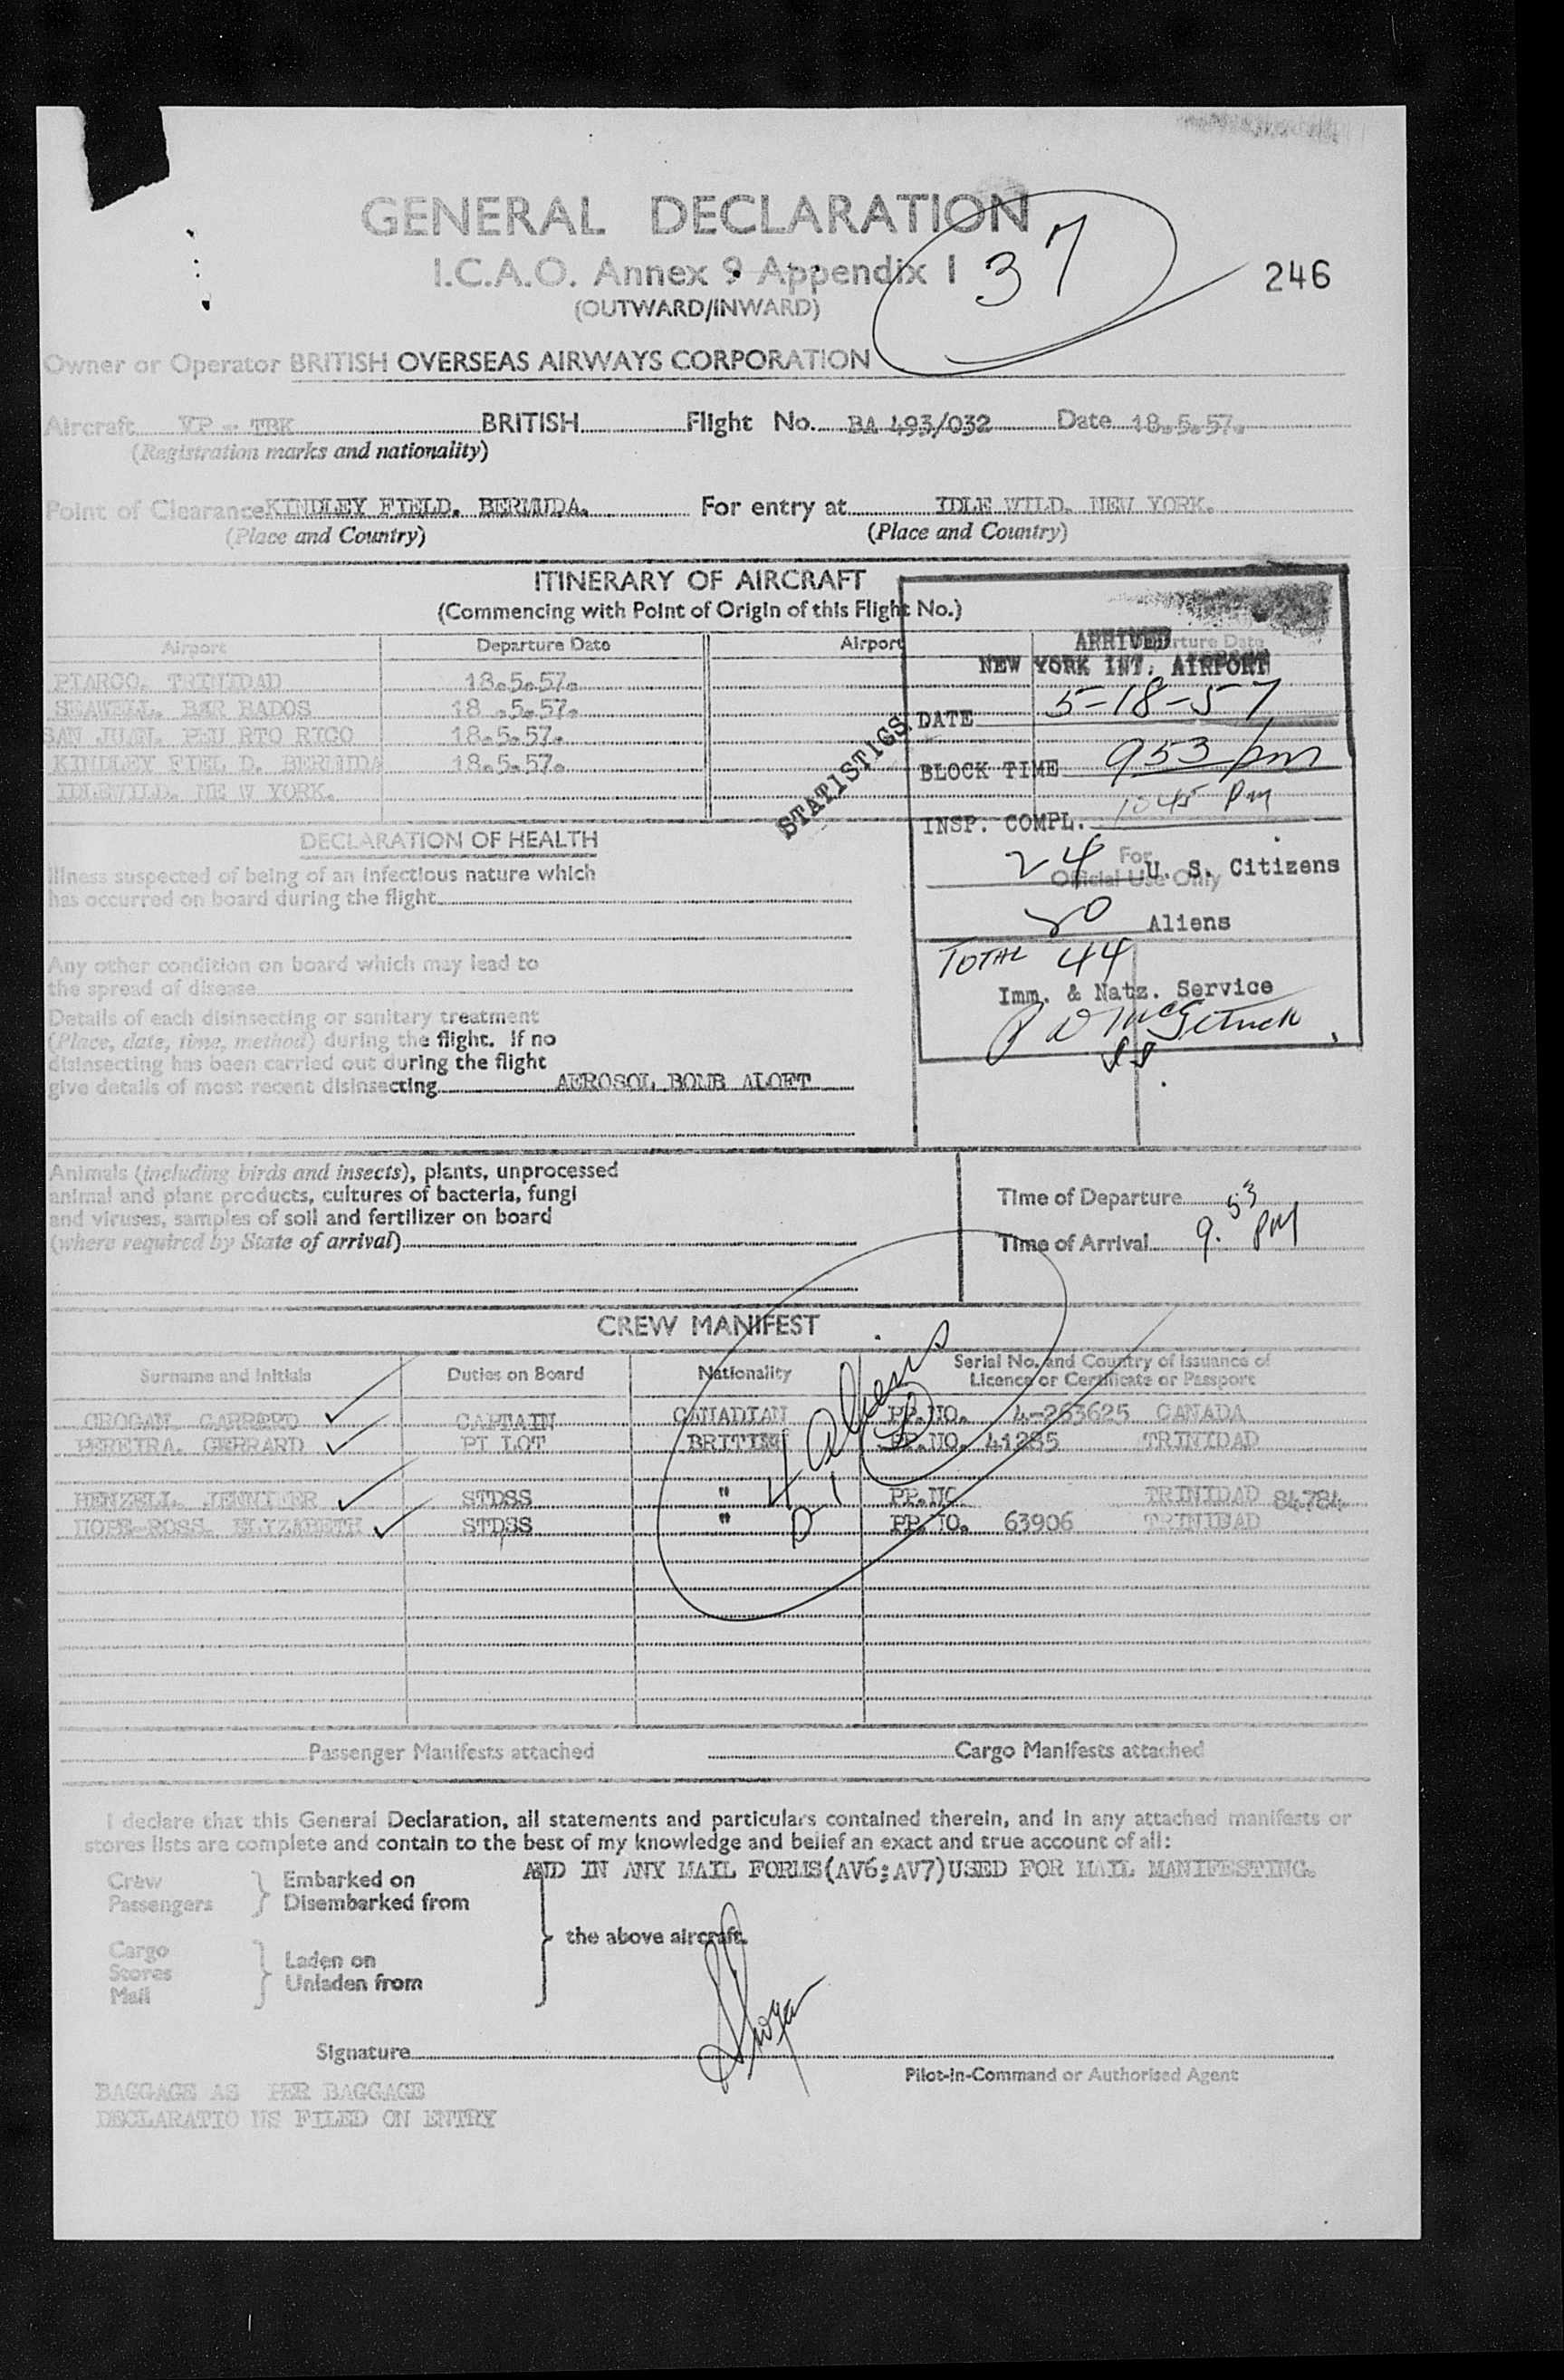 GENERAL DECLARATION
37
I.C.A.O. Annex 9 Appendix I
246
(OUTWARD/INWARD)
Owner or Operator BRITISH OVERSEAS AIRWAYS CORPORATION
Aircraft VP - TBK BRITISH Flight No. BA 493/032 Date 18.5.57.
(Registration marks and nationality)
Point of Clearance KINDLEY FIELD. BERMUDA. For entry at IDLE WILD. NEW YORK.
(Place and Country) (Place and Country)
ITINERARY OF AIRCRAFT
(Commencing with Point of Origin of this Flight No.)
Airport Departure Date Airport Departure Date
PIARCO. TRINIDAD 18.5.57.
SEAWELL. BAR BADOS 18 .5.57.
SAN JUAN. PEU RTO RICO 18.5.57.
KINDLEY FIEL D. BERMUDA 18.5.57.
IDLEWILD. NE W YORK.
STATISTICS
ARRIVED
NEW YORK INT. AIRPORT
DATE 5-18-57
BLOCK TIME 953 pm
INSP. COMPL. 1045 PM
24 U. S. Citizens
For
Official Use Only
20 Aliens
TOTAL 44
Imm. & Natz. Service
DECLARATION OF HEALTH
Illness suspected of being of an infectious nature which
has occurred on board during the flight
Any other condition on board which may lead to
the spread of disease
Details of each disinsecting or sanitary treatment
(Place, date, time, method) during the flight. If no
disinsecting has been carried out during the flight
give details of most recent disinsecting AEROSOL BOMB ALOFT
Animals (including birds and insects), plants, unprocessed
animal and plant products, cultures of bacteria, fungi
and viruses, samples of soil and fertilizer on board
(where required by State of arrival)
Time of Departure
Time of Arrival 9.53 PM
CREW MANIFEST
Surname and Initials Duties on Board Nationality Serial No. and Country of Issuance of
Licence or Certificate or Passport
GROGAN GARRARD CAPTAIN CANADIAN PP.NO. 4-263625 CANADA
PEREIRA. GERRARD PI LOT BRITISH PP.NO. 41285 TRINIDAD
HENZELL. JENNIFER STDSS " PP.NO. TRINIDAD 84784
HOPE-ROSS. ELIZABETH STDSS " PP.NO. 63906 TRINIDAD
4 Aliens
Passenger Manifests attached Cargo Manifests attached
I declare that this General Declaration, all statements and particulars contained therein, and in any attached manifests or
stores lists are complete and contain to the best of my knowledge and belief an exact and true account of all:
AND IN ANY MAIL FORMS(AV6;AV7)USED FOR MAIL MANIFESTING.
Crew Embarked on
Passengers Disembarked from
the above aircraft.
Cargo Laden on
Stores Unladen from
Mail
Signature
Pilot-in-Command or Authorised Agent
BAGGAGE AS PER BAGGAGE
DECLARATIO NS FILED ON ENTRY